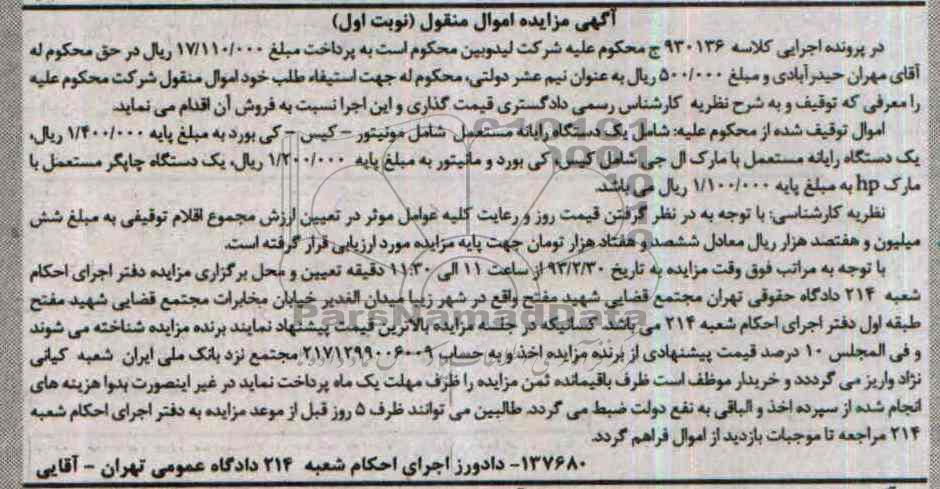 آگهی مزایده اموال منقول (نوبت اول)
در پرونده اجرایی کلاسه ۹۳۰۱۳۶ ج محکوم علیه شرکت لیدوبین محکوم است به پرداخت مبلغ ۱۷/۱۱۰/۰۰۰ ریال در حق محکوم له
آقای مهران حیدرآبادی و مبلغ ۵۰۰/۰۰۰ ریال به عنوان نیم عشر دولتی، محکوم له جهت استیفاء طلب خود اموال منقول شرکت محکوم علیه
را معرفی که توقیف و به شرح نظریه کارشناس رسمی دادگستری قیمت گذاری و این اجرا نسبت به فروش آن اقدام می نماید.
اموال توقیف شده از محکوم علیه: شامل یک دستگاه رایانه مستعمل شامل مونیتور - کیس - کی بورد به مبلغ پایه ۱/۴۰۰/۰۰۰ ریال،
یک دستگاه رایانه مستعمل با مارک ال جی شامل کیس، کی بورد و مانیتور به مبلغ پایه ۱/۲۰۰/۰۰۰ ریال، یک دستگاه چاپگر مستعمل با
مارک hp به مبلغ پایه ۱/۱۰۰/۰۰۰ ریال می باشد.
نظریه کارشناسی: با توجه به در نظر گرفتن قیمت روز و رعایت کلیه عوامل موثر در تعیین ارزش مجموع اقلام توقیفی به مبلغ شش
میلیون و هفتصد هزار ریال معادل ششصد و هفتاد هزار تومان جهت پایه مزایده مورد ارزیابی قرار گرفته است.
با توجه به مراتب فوق وقت مزایده به تاریخ ۹۳/۲/۳۰ از ساعت ۱۱ الی ۱۱:۳۰ دقیقه تعیین و محل برگزاری مزایده دفتر اجرای احکام
شعبه ۲۱۴ دادگاه حقوقی تهران مجتمع قضایی شهید مفتح واقع در شهر زیبا میدان الغدیر خیابان مخابرات مجتمع قضایی شهید مفتح
طبقه اول دفتر اجرای احکام شعبه ۲۱۴ می باشد. کسانیکه در جلسه مزایده بالاترین قیمت پیشنهاد نمایند برنده مزایده شناخته می شوند
و فی المجلس ۱۰ درصد قیمت پیشنهادی از برنده مزایده اخذ و به حساب ۲۱۷۱۲۹۹۰۰۶۰۰۹ مجتمع نزد بانک ملی ایران شعبه کیانی
نژاد واریز می گرددد و خریدار موظف است ظرف باقیمانده ثمن مزایده را ظرف مهلت یک ماه پرداخت نماید در غیر اینصورت بدوا هزینه های
انجام شده از سپرده اخذ و الباقی به نفع دولت ضبط می گردد. طالبین می توانند ظرف ۵ روز قبل از موعد مزایده به دفتر اجرای احکام شعبه
۲۱۴ مراجعه تا موجبات بازدید از اموال فراهم گردد.
۱۳۷۶۸۰- دادورز اجرای احکام شعبه ۲۱۴ دادگاه عمومی تهران - آقایی
ParsNamadData